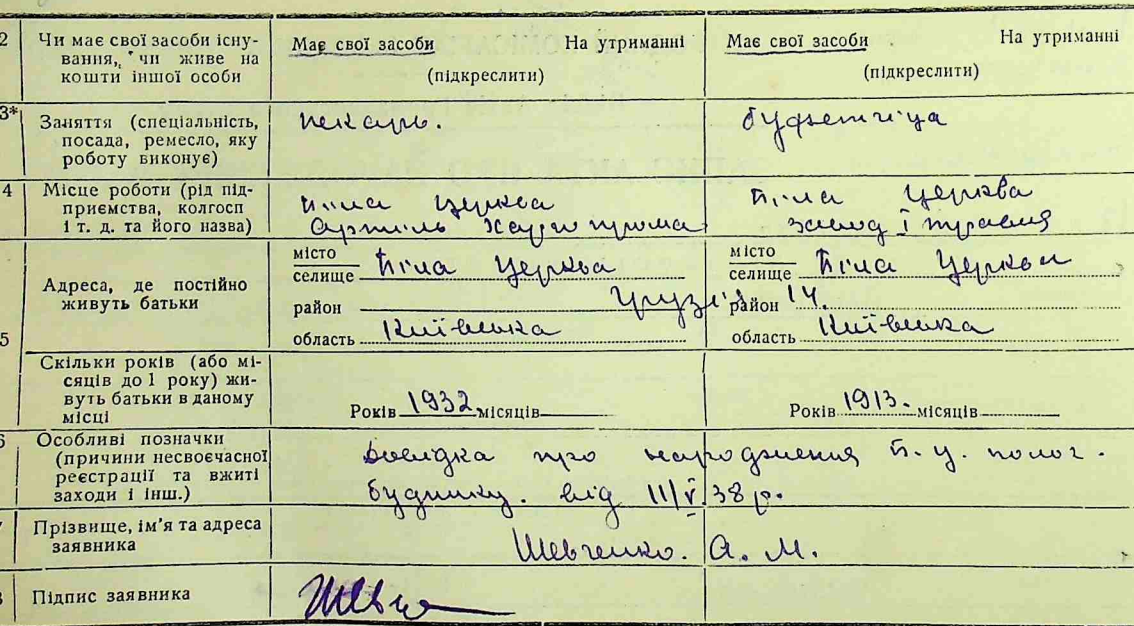 2 Чи має свої засоби існу-
вання, чи живе на
кошти іншої особи
Має свої засоби На утриманні
(підкреслити)
Має свої засоби На утриманні
(підкреслити)
3* Заняття (спеціальність,
посада, ремесло, яку
роботу виконує)
пекарь.
буфетчіца
4 Місце роботи (рід під-
приємства, колгосп
і т. д. та його назва)
Біла Церква
Артиль Харчопрома
Біла Церква
завод І травня
5 Адреса, де постійно
живуть батьки
місто
селище Біла Церква
район
область Київська
місто
селище Біла Церква
район 14.
область Київська
Скільки років (або мі-
сяців до 1 року) жи-
вуть батьки в даному
місці
Років 1932 місяців
Років 1913. місяців
6 Особливі позначки
(причини несвоєчасної
реєстрації та вжиті
заходи і інш.)
Довідка про народження Б. Ц. полог.
будинку. від 11/V 38 р.
7 Прізвище, ім'я та адреса
заявника
Шевченко. А. М.
8 Підпис заявника